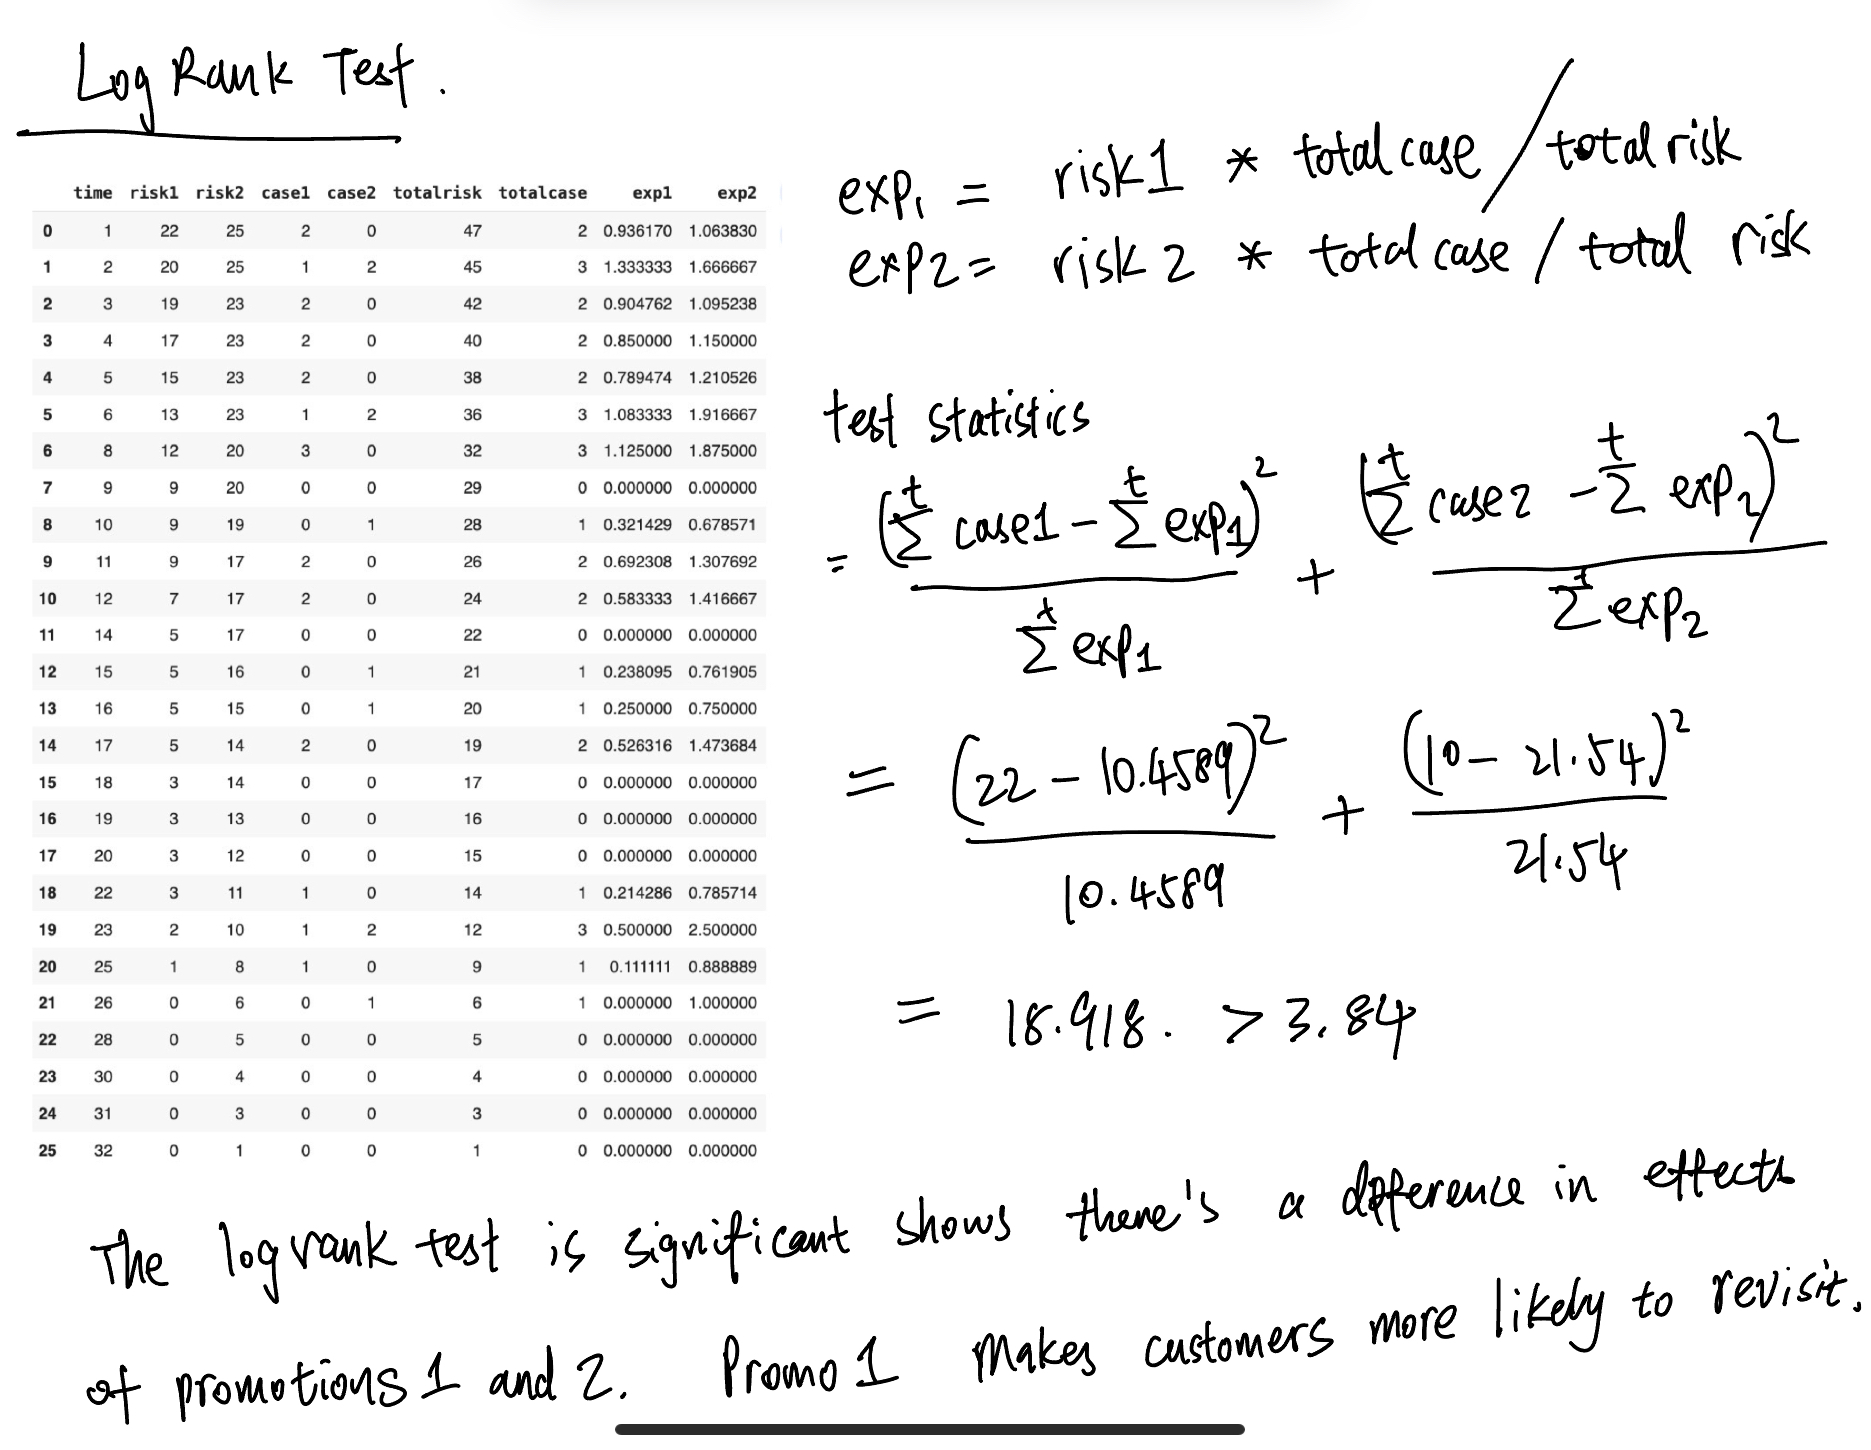 Log Rank Test.
time risk1 risk2 case1 case2 totalrisk totalcase exp1 exp2
0 1 22 25 2 0 47 2 0.936170 1.063830
1 2 20 25 1 2 45 3 1.333333 1.666667
2 3 19 23 2 0 42 2 0.904762 1.095238
3 4 17 23 2 0 40 2 0.850000 1.150000
4 5 15 23 2 0 38 2 0.789474 1.210526
5 6 13 23 1 2 36 3 1.083333 1.916667
6 8 12 20 3 0 32 3 1.125000 1.875000
7 9 9 20 0 0 29 0 0.000000 0.000000
8 10 9 19 0 1 28 1 0.321429 0.678571
9 11 9 17 2 0 26 2 0.692308 1.307692
10 12 7 17 2 0 24 2 0.583333 1.416667
11 14 5 17 0 0 22 0 0.000000 0.000000
12 15 5 16 0 1 21 1 0.238095 0.761905
13 16 5 15 0 1 20 1 0.250000 0.750000
14 17 5 14 2 0 19 2 0.526316 1.473684
15 18 3 14 0 0 17 0 0.000000 0.000000
16 19 3 13 0 0 16 0 0.000000 0.000000
17 20 3 12 0 0 15 0 0.000000 0.000000
18 22 3 11 1 0 14 1 0.214286 0.785714
19 23 2 10 1 2 12 3 0.500000 2.500000
20 25 1 8 1 0 9 1 0.111111 0.888889
21 26 0 6 0 1 6 1 0.000000 1.000000
22 28 0 5 0 0 5 0 0.000000 0.000000
23 30 0 4 0 0 4 0 0.000000 0.000000
24 31 0 3 0 0 3 0 0.000000 0.000000
25 32 0 1 0 0 1 0 0.000000 0.000000
exp₁ = risk1 * total case / total risk
exp2 = risk 2 * total case / total risk
test statistics
= (Σᵗ case1 - Σᵗ exp1)² / Σᵗ exp1 + (Σᵗ case2 - Σᵗ exp₂)² / Σᵗ exp₂
= (22 - 10.4589)² / 10.4589 + (10 - 21.54)² / 21.54
= 18.918. > 3.84
The log rank test is significant shows there's a difference in effects
of promotions 1 and 2. Promo 1 makes customers more likely to revisit.